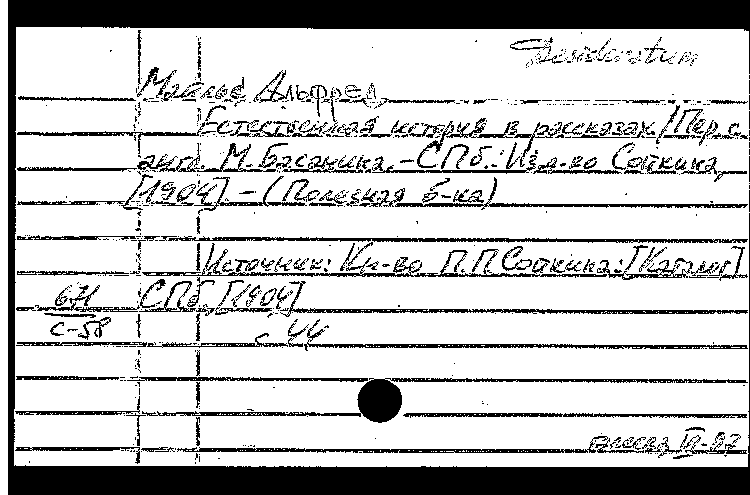 Desideratum
Майльс Альфред
Естественная история в рассказах / Пер. с
англ. М. Басанина. - СПб.: Изд-во Сойкина,
[1904]. - (Полезная б-ка)
Источник: Кн-во П.П. Сойкина: [Каталог]
671 СПб., [1904]
С-58 с. 44
III-87